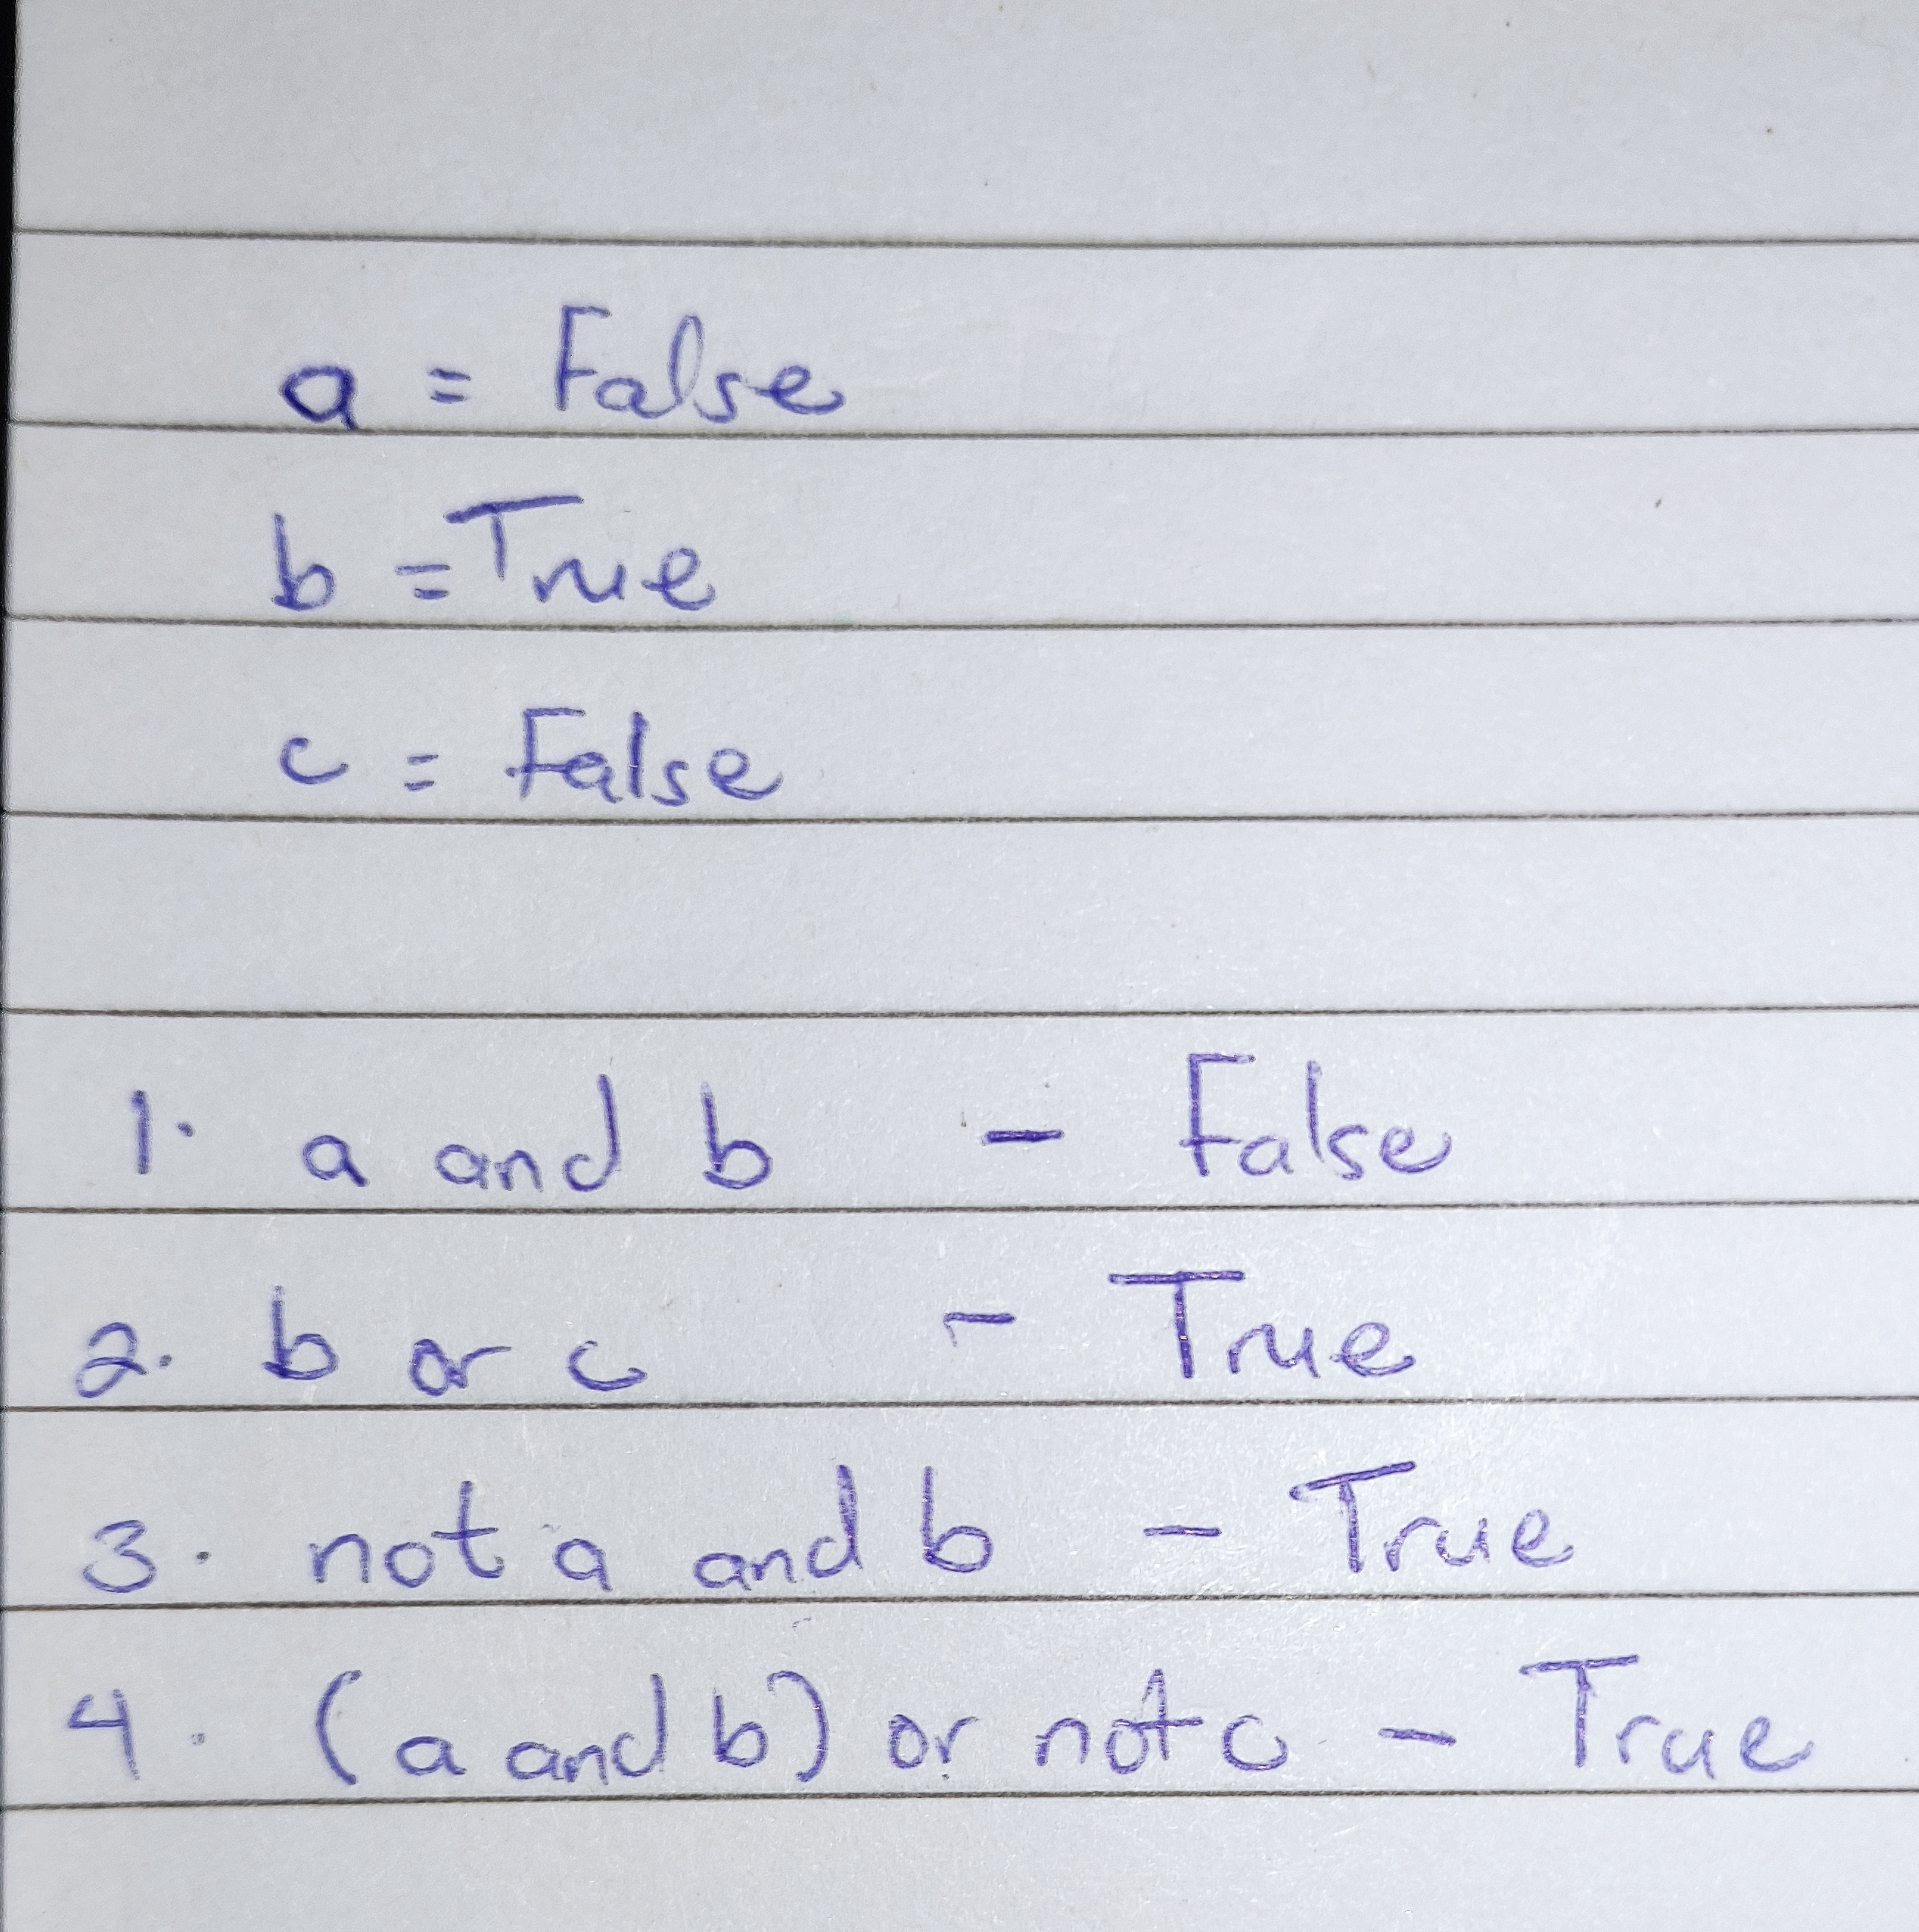 a = False
b = True
c = False
1. a and b - False
2. b or c - True
3. not a and b - True
4. (a and b) or not c - True